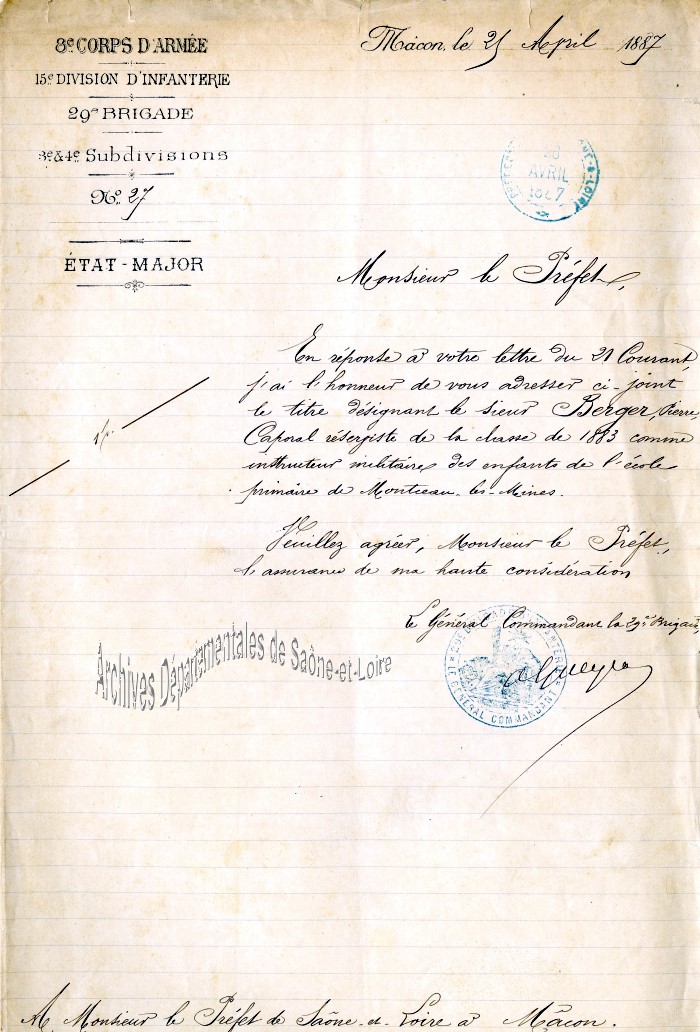 8e CORPS D'ARMÉE
15e DIVISION D'INFANTERIE
29e BRIGADE
3e & 4e Subdivisions
No. 27
ÉTAT-MAJOR
Mâcon, le 25 April 1887
AVRIL
1887
Monsieur le Préfet,
En réponse à votre lettre du 21 Courant,
j'ai l'honneur de vous adresser ci-joint
le titre désignant le sieur Berger, Pierre,
Caporal réserviste de la classe de 1883 comme
instructeur militaire, des enfants de l'école
primaire de Montceau-les-Mines.
1 p.
Veuillez agréer, Monsieur le Préfet,
l'assurance de ma haute considération
Le Général Commandant la 29e Brigade
LE GÉNÉRAL COMMANDANT
Archives Départementales de Saône-et-Loire
A Monsieur le Préfet de Saône-et-Loire à Mâcon.